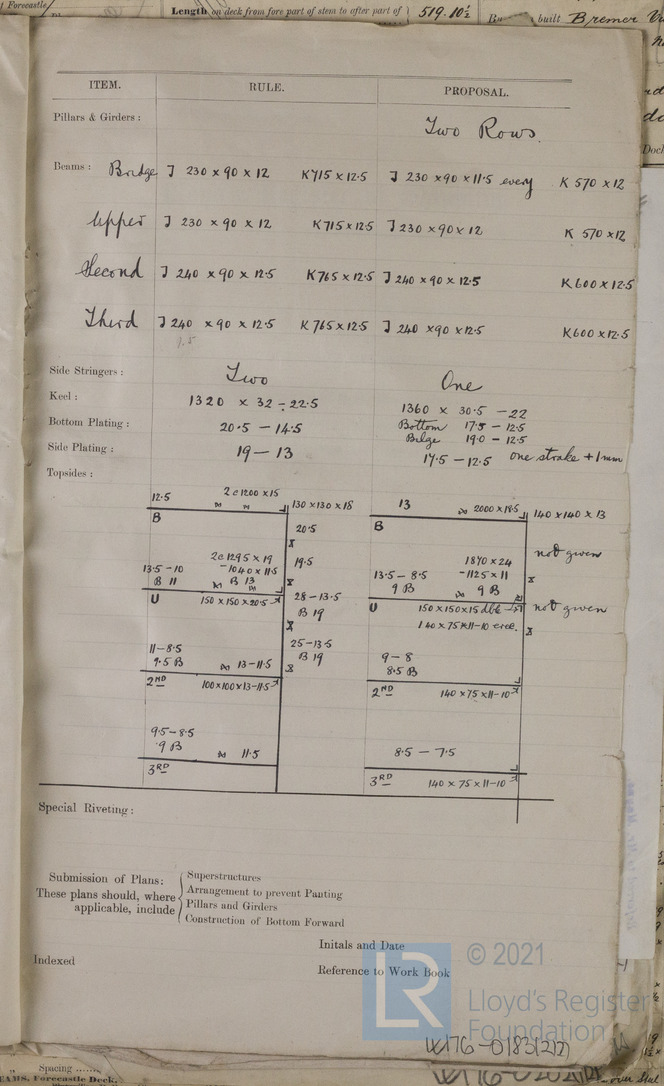 Forecastle
Length on deck from fore part of stem to after part of } 519.10½
built Bremer
ITEM. RULE. PROPOSAL.
Pillars & Girders :
Two Rows.
Beams : Bridge J 230 × 90 × 12 K 715 × 12.5 J 230 × 90 × 11.5 every K 570 × 12
Upper J 230 × 90 × 12 K 715 × 12.5 J 230 × 90 × 12 K 570 × 12
Second J 240 × 90 × 12.5 K 765 × 12.5 J 240 × 90 × 12.5 K 600 × 12.5
Third J 240 × 90 × 12.5 K 765 × 12.5 J 240 × 90 × 12.5 K 600 × 12.5
Side Stringers : Two One
Keel : 1320 × 32 – 22.5 1360 × 30.5 – 22
Bottom Plating : 20.5 – 14.5 Bottom 17.5 – 12.5
Bilge 19.0 – 12.5
Side Plating : 19 – 13 17.5 – 12.5 one strake + 1mm
Topsides :
12.5 2 c 1200 × 15 130 × 130 × 18 13 2000 × 18.5 140 × 140 × 13
B 20.5 B
not given
2 c 1295 × 19 19.5 1870 × 24
13.5 – 10 – 1040 × 11.5 13.5 – 8.5 – 1125 × 11
B 11 B 13 9 B 9 B
U 150 × 150 × 20.5 28 – 13.5 U 150 × 150 × 15 dble not given
B 19 140 × 75 × 11–10 elec.
11 – 8.5 25 – 13.5
9.5 B 13 – 11.5 B 19 9 – 8
8.5 B
2ND 100 × 100 × 13–11.5 2ND 140 × 75 × 11–10
9.5 – 8.5
9 B 11.5 8.5 – 7.5
3RD 3RD 140 × 75 × 11–10
Special Riveting :
Submission of Plans: Superstructures
These plans should, where Arrangement to prevent Panting
applicable, include Pillars and Girders
Construction of Bottom Forward
Initals and Date
Indexed
Reference to Work Book
LR © 2021
Lloyd's Register
Foundation
W176-0183(2/2)
Spacing ......
BEAMS, Forecastle Deck,